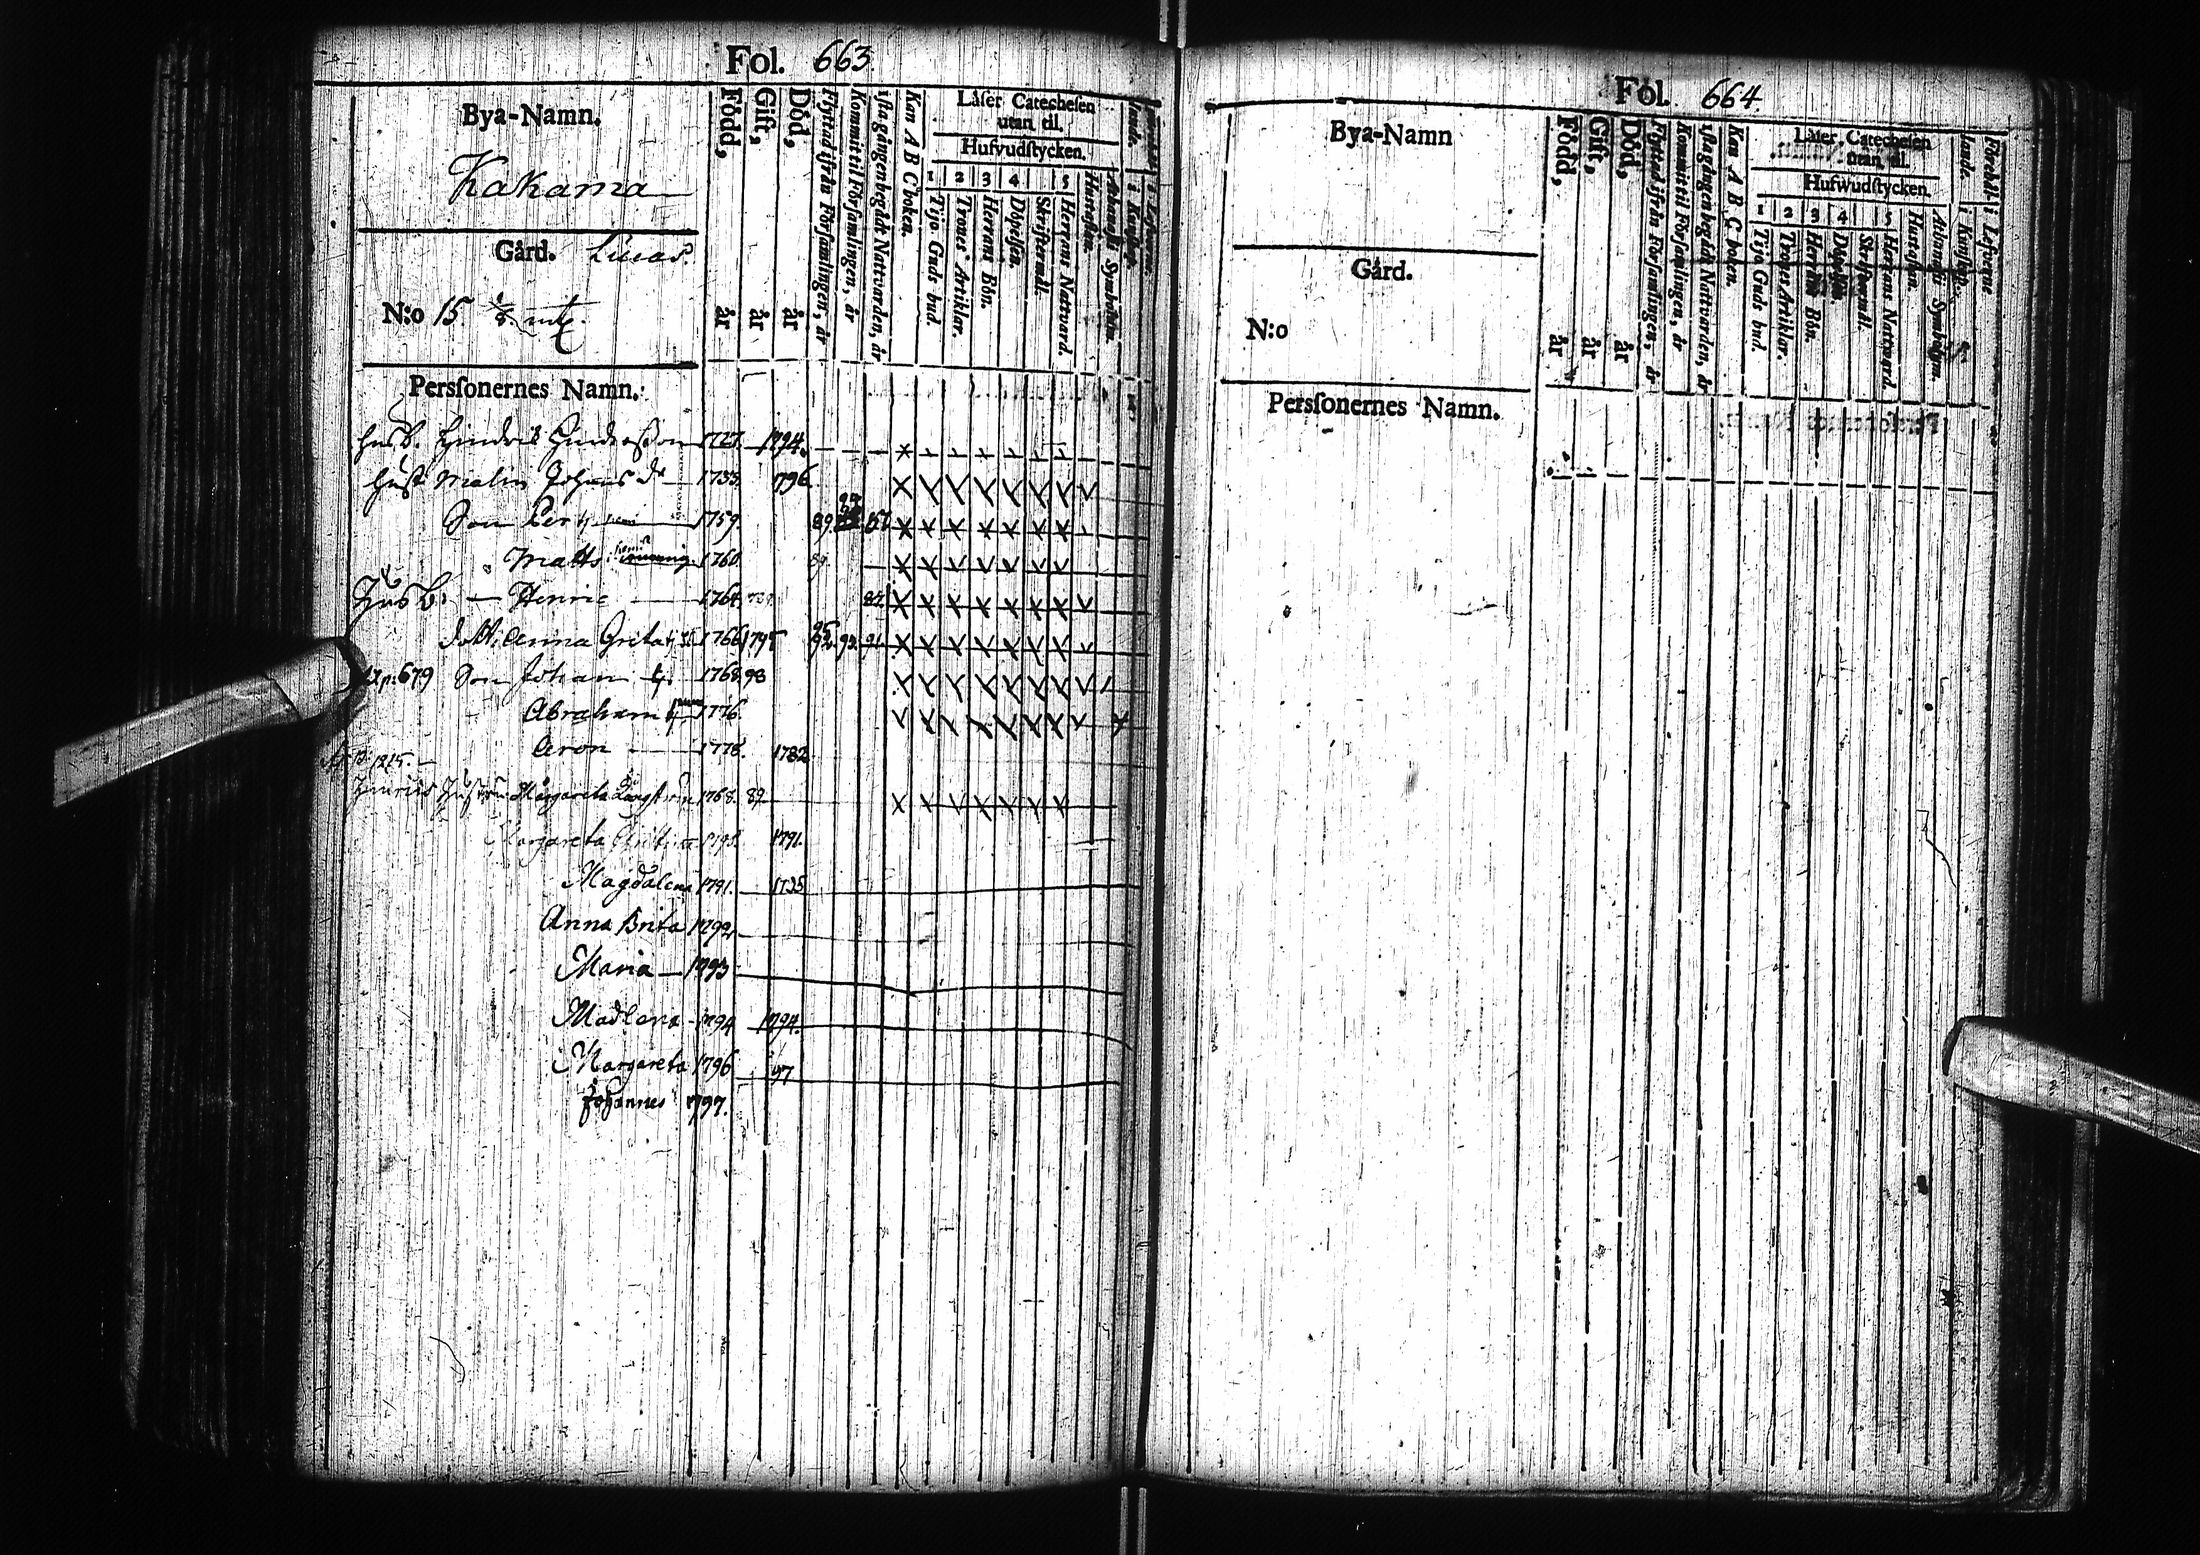 Fol. 663
Bya-Namn.
Kakama
Gård. Lucas.
N:o 15
Persſonernes Namn.
Född, år
Gift, år
Död, år
Flyttad ifrån Förſamlingen, år
Kommit til Förſamlingen, år
1ſta gången begådt Nattvarden, år
Kan A B C boken.
Låſer Catecheſen utan til.
Hufvudſtycken.
1 2 3 4 5
Tijo Guds bud.
Trones Artiklar.
Herrans Bön.
Döpelſen.
Skriftermål.
Herrans Nattvard.
Huſtaflan.
Athanaſii Symbolum.
Husb. Hindric Hindersson 1727. 1794.
Hust Malin Johans dr 1733 1796.
Son Per 1759 89
Matts 1760. 89.
Husb. Henric 1764 87
dott: Anna Greta 1766 1795 93. 91
679 Son Johan 1768 93
Abraham 1776.
Aron 1778. 1782
Hinrics Hustru Margareta 1768. 89
Margareta Christina 1791.
Magdalena 1791.
Anna Brita 1792
Maria 1793
Madlena 1794 1794.
Margareta 1796 97
Johannes 1797.
Fol. 664
Bya-Namn
Gård.
N:o
Persſonernes Namn.
Född, år
Gift, år
Död, år
Flyttad ifrån Förſamlingen, år
Kommit til Förſamlingen, år
1ſta gången begådt Nattvarden, år
Kan A B C boken.
Låſer Catecheſen utan til.
Hufwudſtycken.
1 2 3 4 5
Tijo Guds bud.
Trones Artiklar.
Herrans Bön.
Döpelſen.
Skriftermål.
Herrans Nattward.
Huſtaflan.
Athanaſii Symbolum.